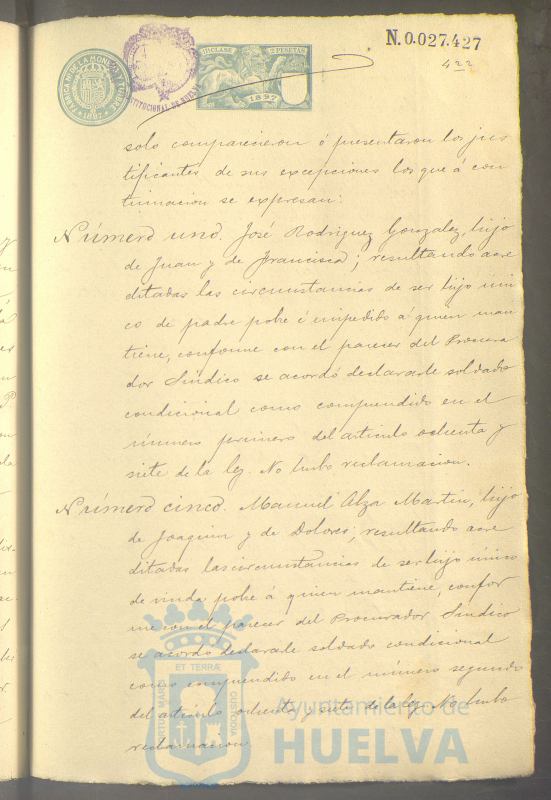 N.0.027.427
422
FABRICA NL DE LA MONEDA Y TIMBRE
1897
11ª CLASE 2 PESETAS
1897
solo comparecieron ó presentaron los jus
tificantes de sus excepciones los que á con
tinuacion se expresan:
Número uno. José Rodriguez Gonzalez, hijo
de Juan y de Francisca; resultando acre
ditadas las circunstancias de ser hijo úni
co de padre pobre é impedido á quien man
tiene, conforme con el parecer del Procura
dor Síndico se acordó declararle soldado
condicional como comprendido en el
número primero del articulo ochenta y
siete de la ley. No hubo reclamacion.
Número cinco. Manuel Alza Martin, hijo
de Joaquin y de Dolores, resultando acre
ditadas las circunstancias de ser hijo único
de viuda pobre á quien mantiene, confor
me con el parecer del Procurador Síndico
se acordó declararle soldado condicional
como comprendido en el número segundo
del articulo ochenta y siete de la ley. No hubo
reclamacion.
ET TERRÆ
PORTUS MARIS
CUSTODIA
Ayuntamiento de
HUELVA